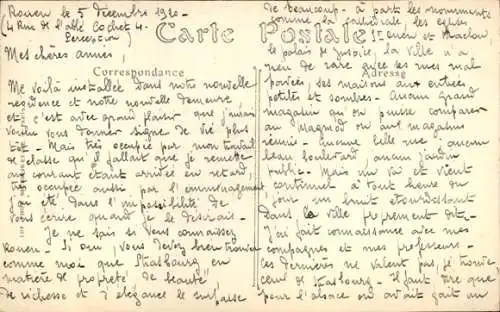 Rouen le 5 Décembre 1920 -
(4 Rue de l'abbé Cochet 4 -
Perception)
Carte Postale
Mes chères amies,
Correspondance
Me voilà installée dans notre nouvelle
résidence et notre nouvelle demeure
et c'est avec grand plaisir que j'aurais
voulu vous donner signe de vie plus
tôt - Mais très occupée par mon travail
de classe qu'il fallait que je remette
au courant étant arrivée en retard,
très occupée aussi par l'emménagement
j'ai été dans l'impossibilité de
vous écrire quand je le désirais -
Je ne sais si vous connaissez
Rouen - Si oui, vous devez bien trouver
comme moi que Strasbourg en
matière de propreté de beauté
de richesse et d'élégance le surpasse
de beaucoup - à part les monuments
comme la cathédrale, les églises
St Ouen et Maclou,
le palais de justice, la ville n'a
Adresse
rien de rare avec ses rues mal
pavées, ses maisons aux entrées
petites et sombres - Aucun grand
magasin qu'on puisse comparer
au Magmod ou aux magasins
réunis - Aucune belle rue, aucun
beau boulevard, aucun jardin
public - Mais un va et vient
continuel à toute heure du
jour un bruit étourdissant
dans la ville proprement dite -
J'ai fait connaissance avec mes
compagnes et mes professeurs -
ces dernières ne valent pas, je trouve
celles de Strasbourg - Il faut dire que
pour l'alsace on avait fait un